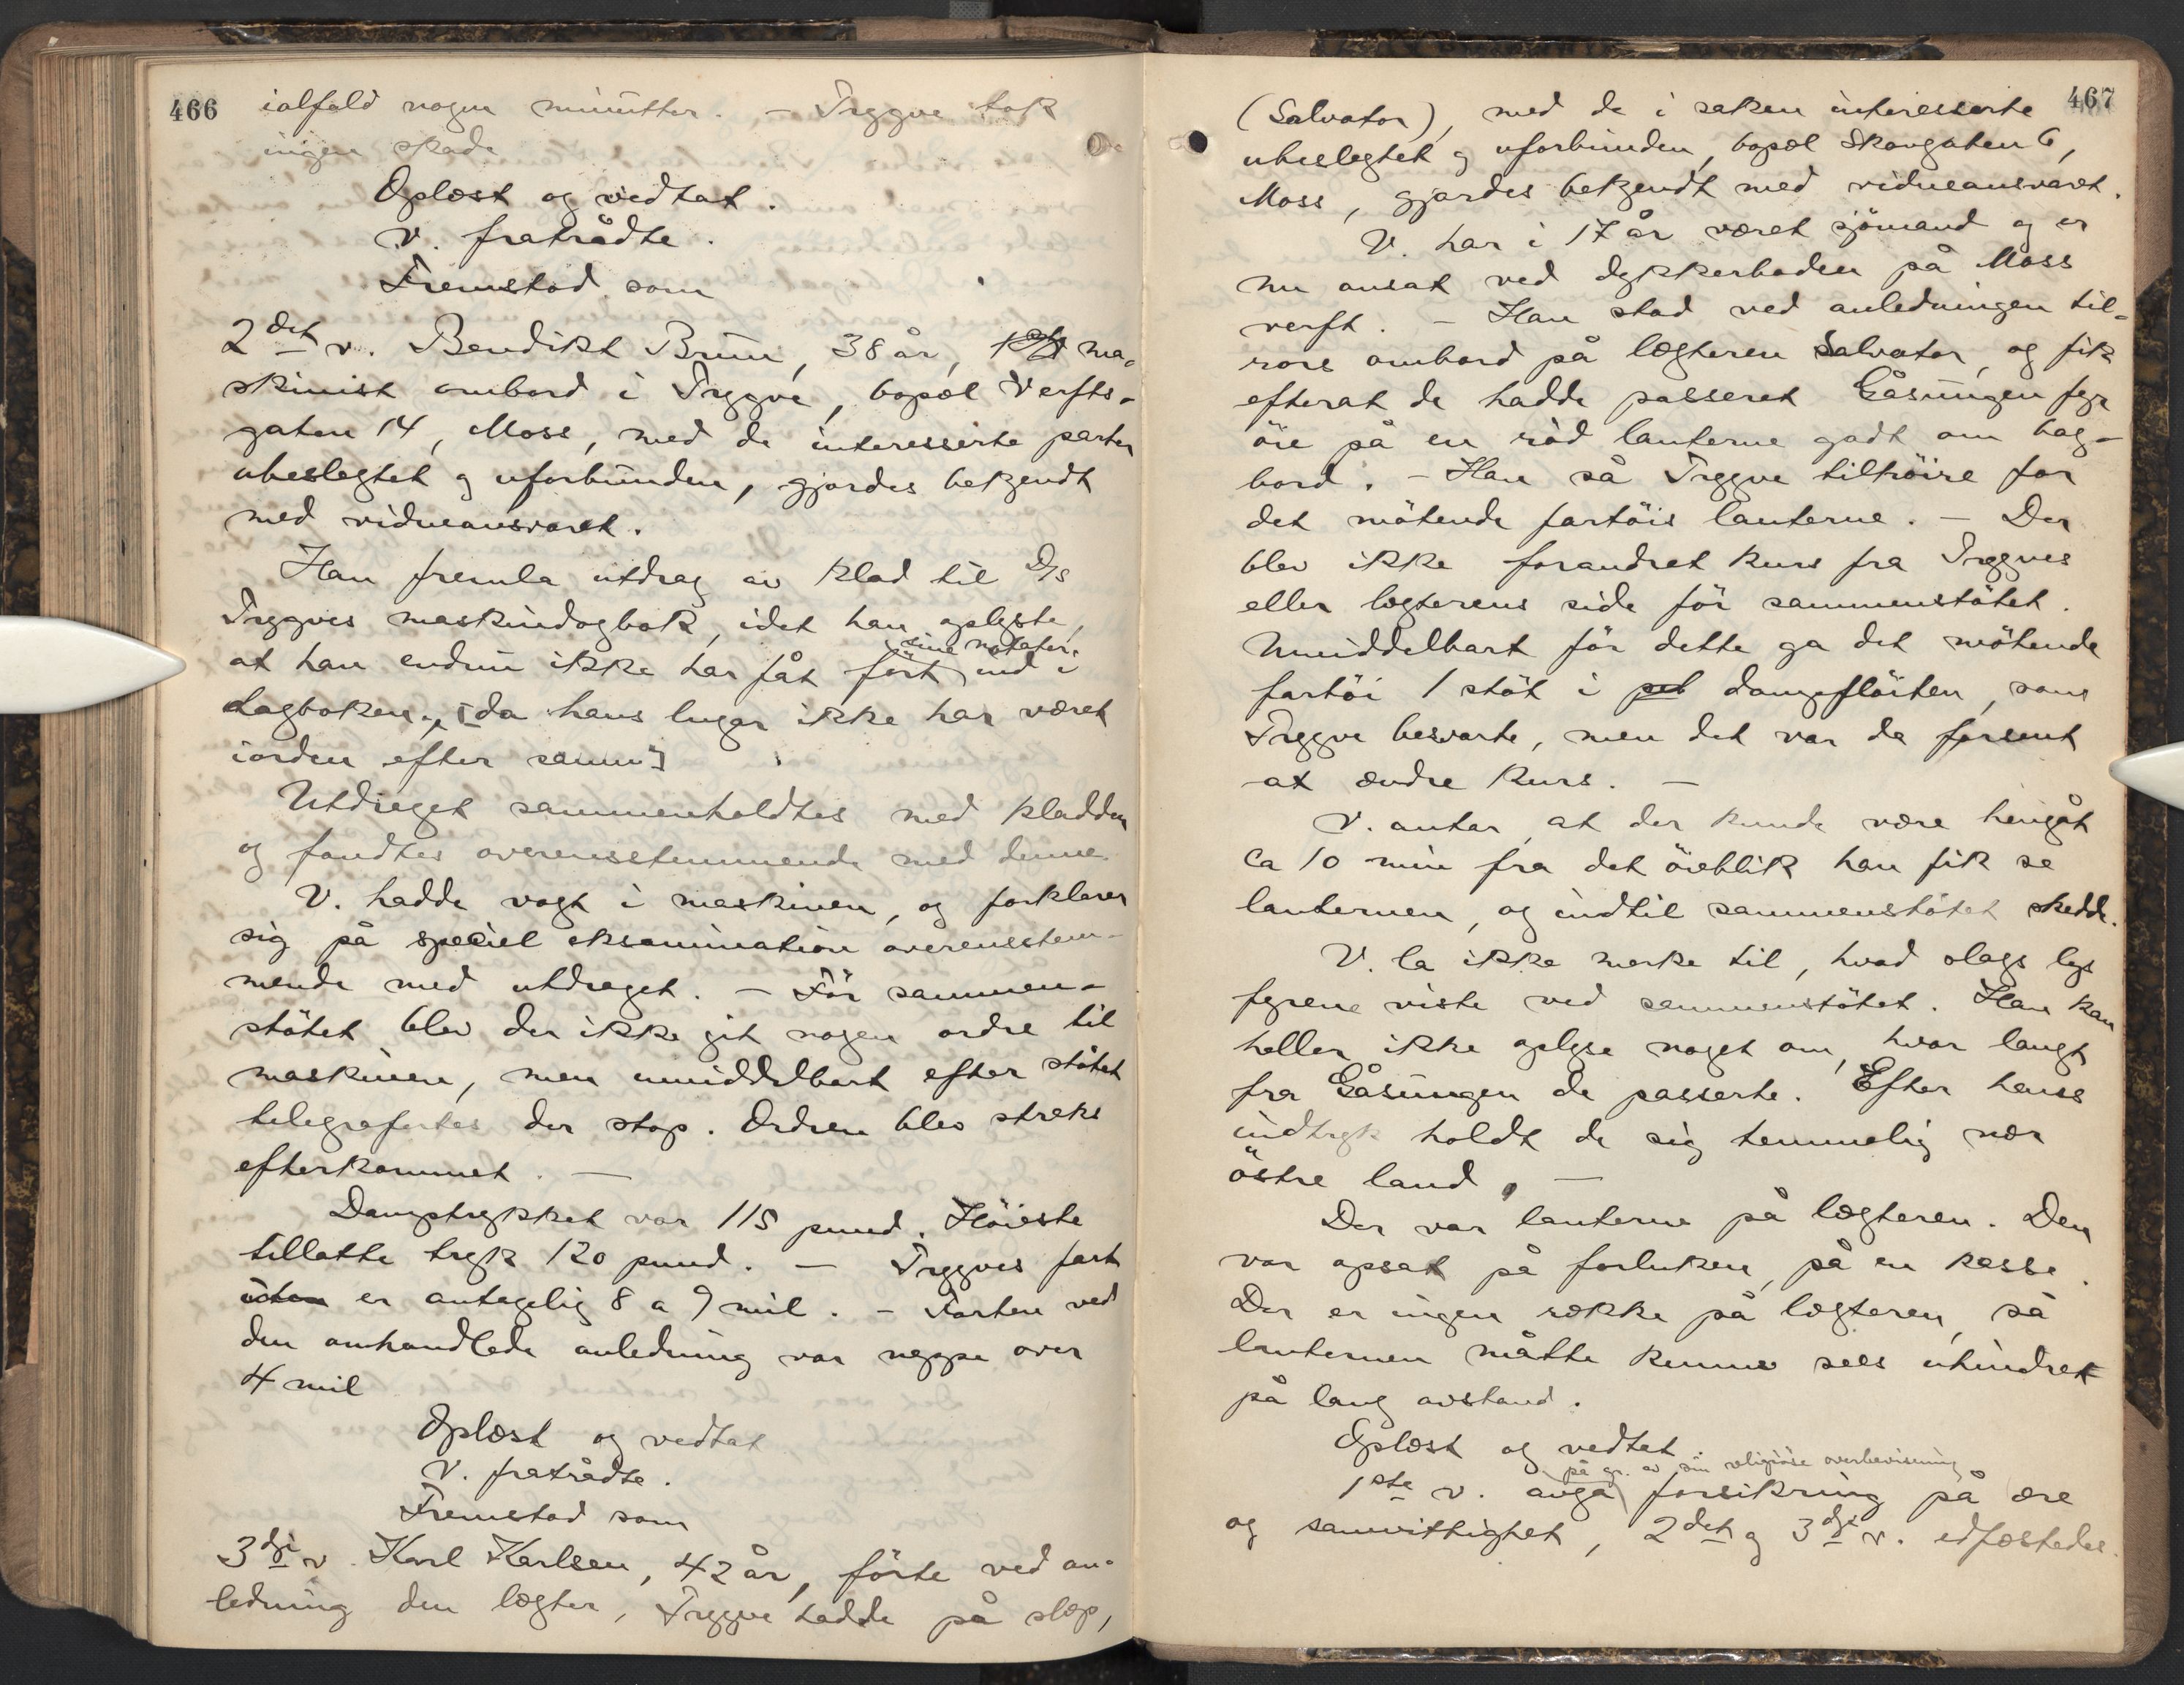 466
ialfald nogen minutter. – Tryggve tok
ingen skade
Oplæst og vedtat.
V. fratrådte.
Fremstod som
2det v. Bendikt Bruu, 38 år, ma-
skinist ombord i Tryggve, bopæl Verfts-
gaten 14, Moss, med de interesserte parter
ubeslegtet og uforbunden, gjordes bekjendt
med vidneansvaret.
Han fremla utdrag av klad til D/s
Tryggves maskindagbok, idet han oplyste,
at han endnu ikke har fåt ført sine notater ind i
dagboken, [da hans lugar ikke har været
iorden efter samm.]
Utdraget sammenholdtes med kladden
og fandtes overensstemmende med denne
V. hadde vagt i maskinen, og forklarer
sig på speciel eksamination overensstem-
mende med utdraget. – Før sammen-
støtet blev der ikke git nogen ordre til
maskinen, men umiddelbart efter støtet
telegrafertes der stop. Ordren blev straks
efterkommet. –
Damptrykket var 115 pund. Høieste
tillatte tryk 120 pund. – Tryggves fart
er antagelig 8 a 9 mil. – Farten ved
den omhandlede anledning var neppe over
4 mil
Oplæst og vedtat
V. fratrådte.
Fremstod som
3dje v. Karl Karlsen, 42 år, førte ved an-
ledning den lægter, Tryggve hadde på slæp,
467
(Salvator), med de i saken interesserte
ubeslegtet og uforbunden, bopæl Skougaten 6,
Moss, gjordes bekjendt med vidneansvaret.
V. har i 17 år været sjømand og er
nu ansat ved dykkerbåden på Moss
verft. – Han stod ved anledningen til-
rors ombord på lægteren Salvator, og fik
efterat de hadde passeret Gåsungen fyr
øie på en rød lanterne godt om bag-
bord. – Han så Tryggve tilhøire for
det møtende fartøis lanterne. – Der
blev ikke forandret kurs fra Tryggves
eller lægterens side før sammenstøtet.
Umiddelbart før dette ga det møtende
fartøi 1 støt i dampfløiten, som
Tryggve besvarte, men det var da forsent
at ændre kurs. –
V. antar, at der kunde være hengåt
ca 10 min fra det øieblik han fik se
lanternen, og indtil sammenstøtet skedde.
V. la ikke merke til, hvad slags lys
fyrene viste ved sammenstøtet. Han kan
heller ikke oplyse noget om, hvor langt
fra Gåsungen de passerte. Efter hans
indtryk holdt de sig temmelig nær
østre land. –
Der var lanterne på lægteren. Den
var opsat på forluken, på en kasse.
Der er ingen række på lægteren, så
lanternen måtte kunne sees uhindret
på lang avstand.
Oplæst og vedtat
på gr. av sin religiøse overbevisning
1ste v. avga forsikring på ære
og samvittighet, 2det og 3dje v. edfæstedes.